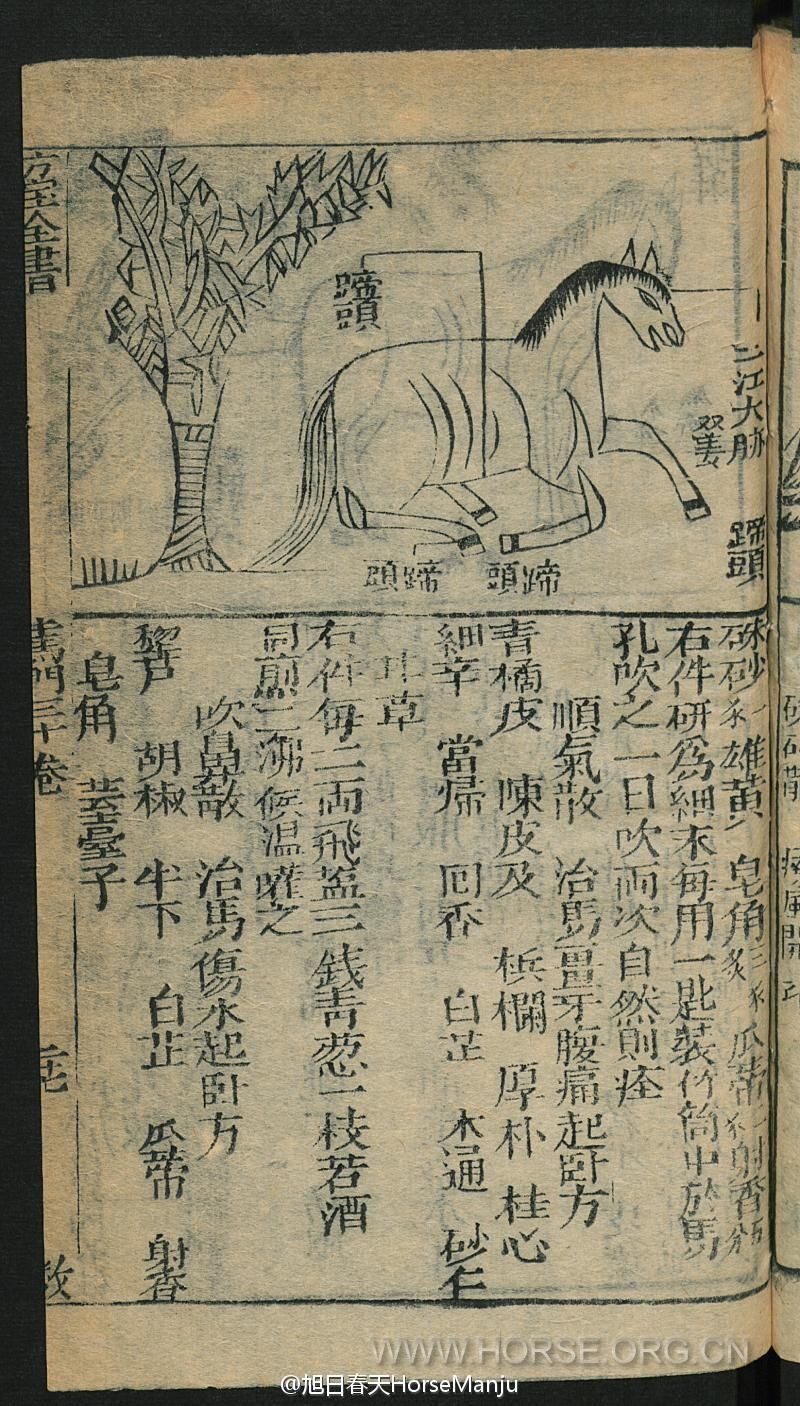 蹄頭
江大肭
双姜
蹄頭
蹄頭
蹄頭
硃砂 雄黄 皂角 瓜蒂 射香
右件研為細末每用一匙裝竹筒中於馬
孔吹之一日吹両次自然則痊
順氣散 治馬薑牙腹痛起卧方
青橘皮 陳皮及 梹榔 厚朴 桂心
細辛 當歸 回香 白芷 木通 砂仁
右件每二両飛塩三錢青葱一枝若酒
同煎三沸候温嚾之
吹鼻散 治馬傷水起卧方
藜芦 胡椒 半下 白芷 瓜蒂 射香
皂角 芸薹子
全書
卷
WWW.HORSE.ORG.CN
@旭日春天HorseManju